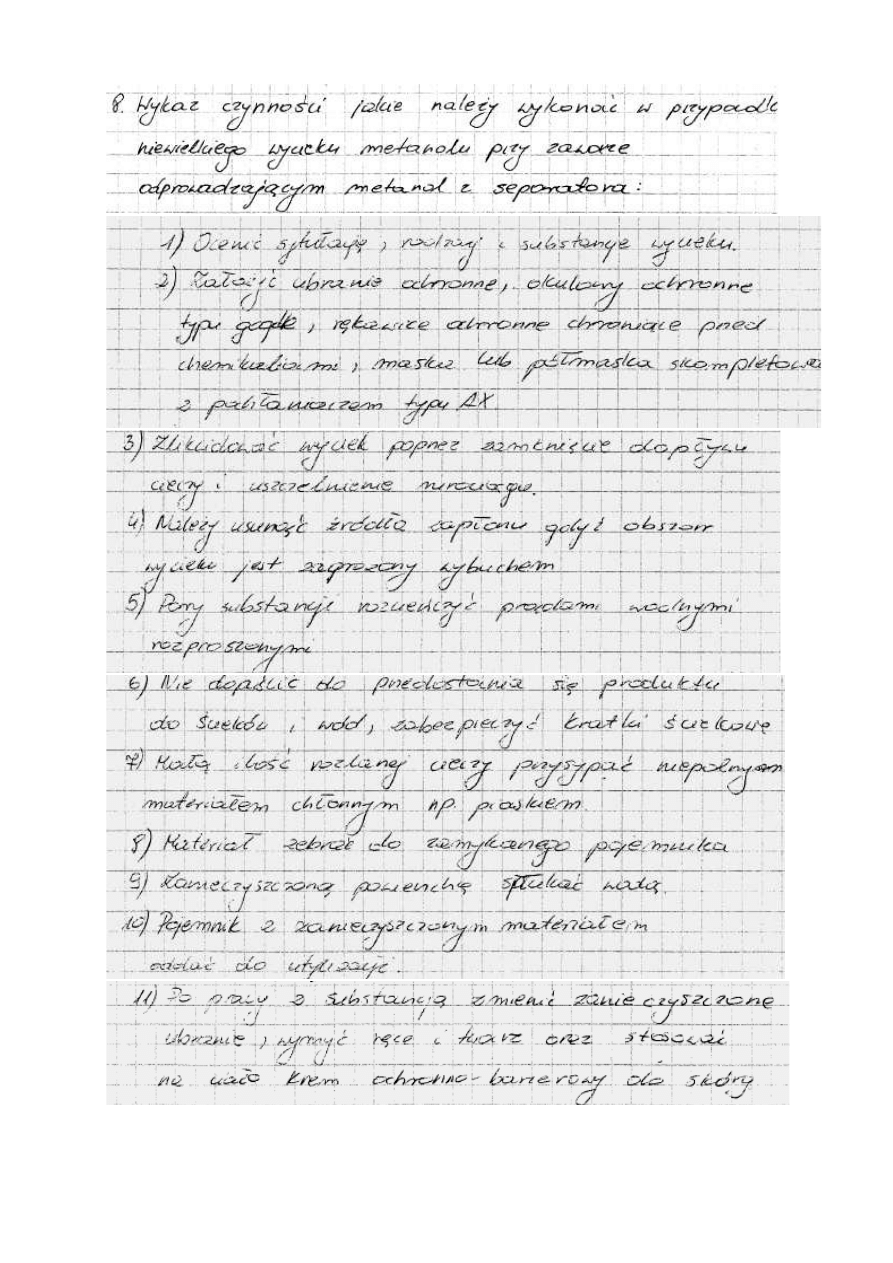 8. Wykaz czynności jakie należy wykonać w przypadk
niewielkiego wycieku metanolu przy zaworze
odprowadzającym metanol z separatora:
1) Ocenić sytuację, rodzaj i substancję wycieku.
2) Założyć ubranie ochronne, okulary ochronne
typu gogle, rękawice ochronne chroniące przed
chemikaliami, maska lub półmaska skompletowa
z pochłaniaczem typu AX.
3) Zlikwidować wyciek poprzez zamknięcie dopływu
cieczy i uszczelnienie rurociągu.
4) Należy usunąć źródła zapłonu gdyż obszar
wycieku jest zagrożony wybuchem
5) Pary substancji rozcieńczyć prądami wodnymi
rozproszonymi
6) Nie dopuścić do przedostania się produktu
do ścieków i wód, zabezpieczyć kratki ściekowe
7) Małą ilość rozlanej cieczy przysypać niepalnym
materiałem chłonnym np. piaskiem.
8) Materiał zebrać do zamykanego pojemnika
9) Zanieczyszczoną powierzchnię spłukać wodą.
10) Pojemnik z zanieczyszczonym materiałem
oddać do utylizacji.
11) Po pracy z substancją zmienić zanieczyszczone
ubranie, wymyć ręce i twarz oraz stosować
na ciało krem ochronno-barierowy do skóry